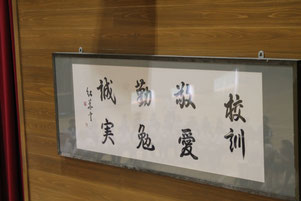 校訓
敬愛
勤勉
誠実